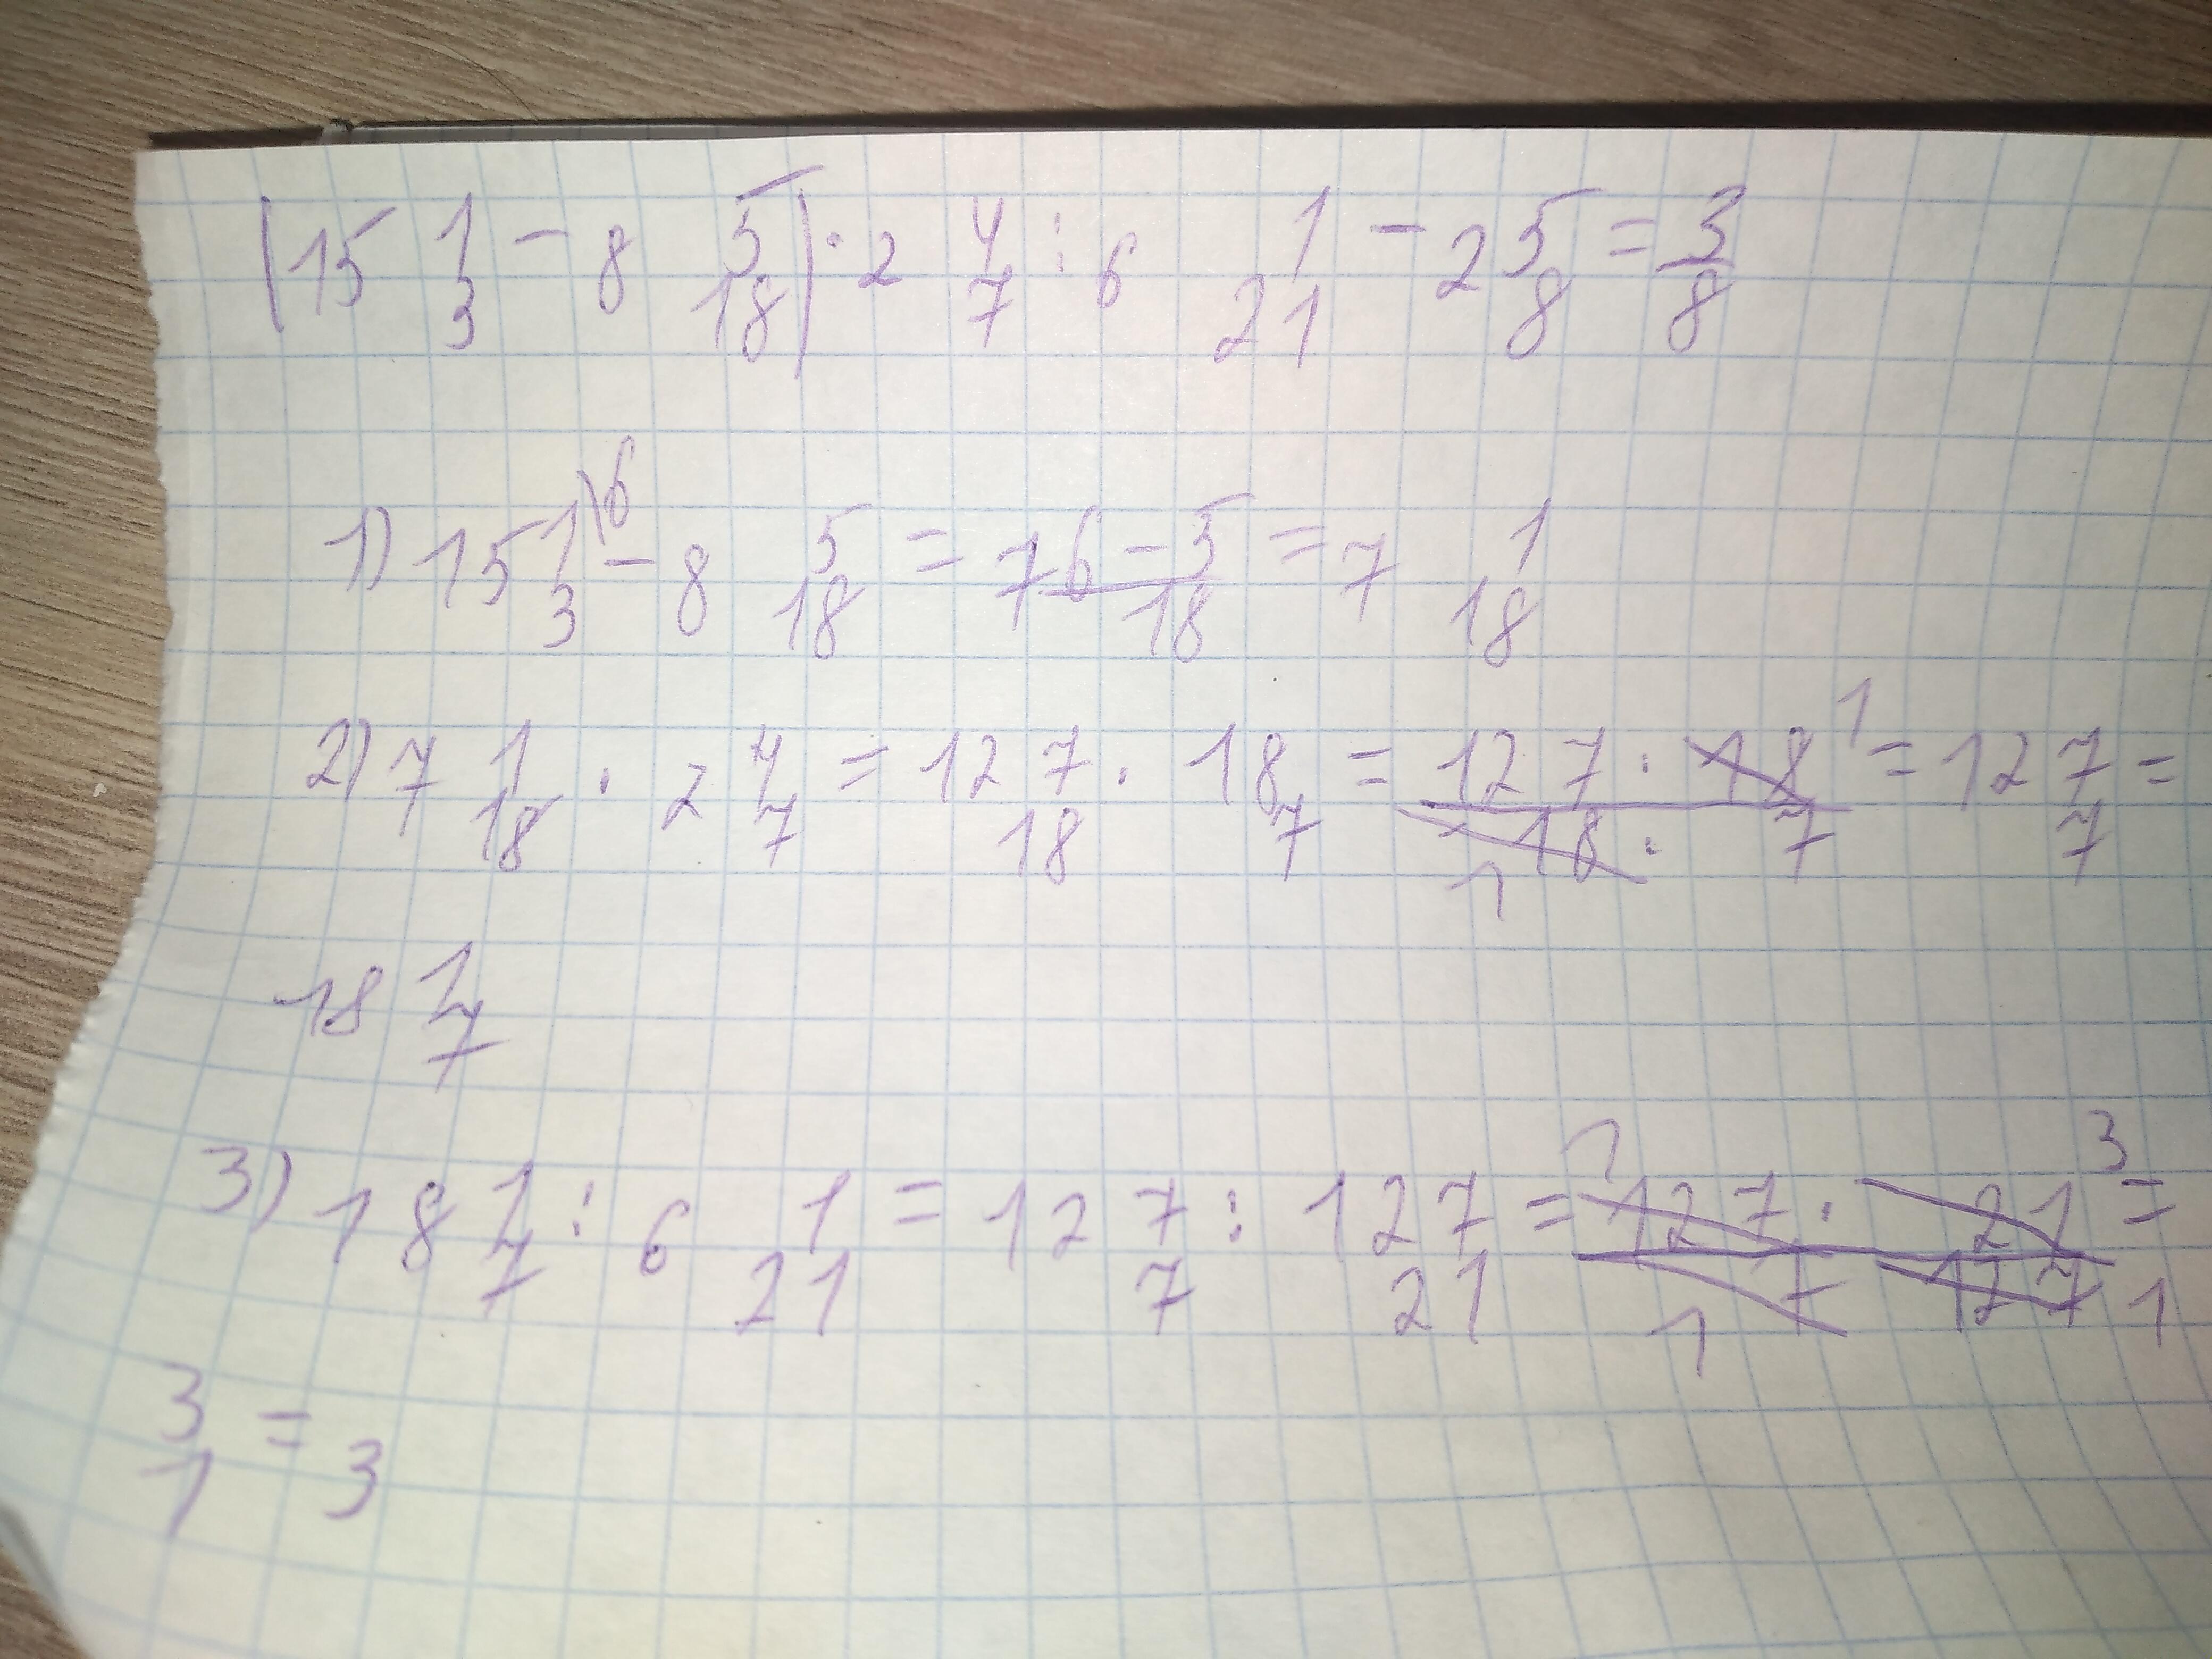 (15 1/3 - 8 5/18) · 2 4/7 : 6 1/21 - 2 5/8 = 3/8
1) 15 1/3 \6 - 8 5/18 = 7 6-5/18 = 7 1/18
2) 7 1/18 · 2 4/7 = 127/18 · 18/7 = 127 · 18 1/18 · 7 1 = 127/7 =
18 1/7
3) 18 1/7 : 6 1/21 = 127/7 : 127/21 = 1 127 · 21 3/7 1 127 1 =
3/1 = 3